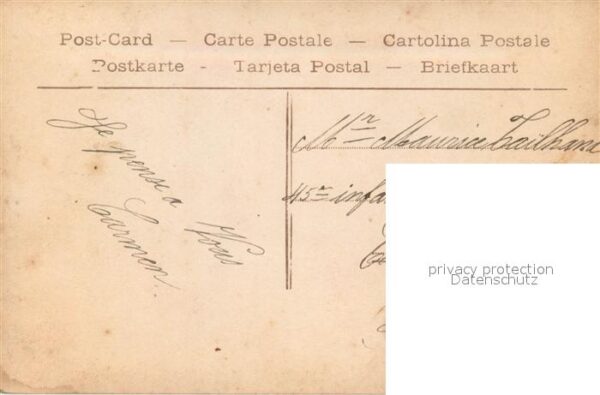 Post-Card — Carte Postale — Cartolina Postale
Postkarte - Tarjeta Postal — Briefkaart
Je pense a
Vous
Carmen.
Mr Maurice
45e infa
privacy protection
Datenschutz